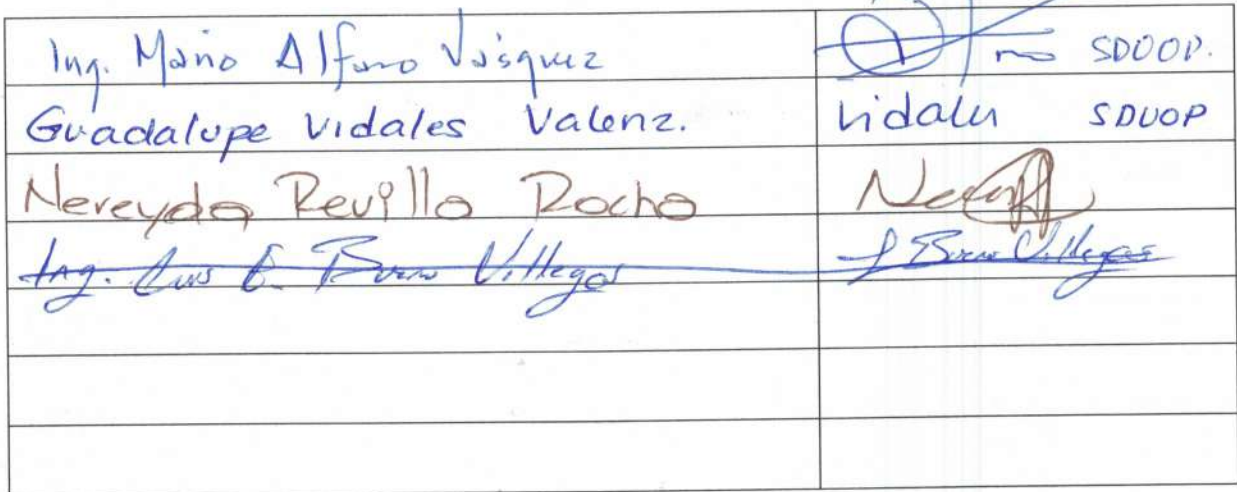 Ing. Mario Alfaro Vásquez SDUOP.
Guadalupe Vidales Valenz. Vidales SDUOP
Nereyda Revilla Rocha
Ing. Luis E. Villegas Villegas